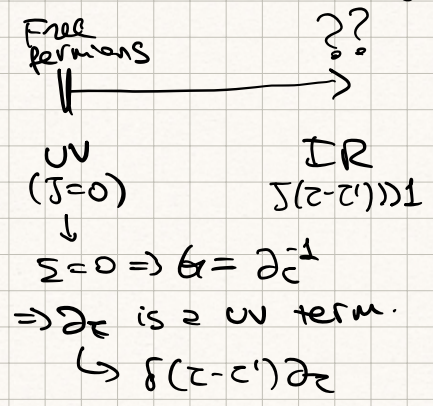 Free
fermions
??
UV
IR
(J=0)
J(τ-τ')>>1
↓
Σ=0 => G = ∂τ⁻¹
=> ∂τ is a UV term.
↳ δ(τ-τ')∂τ